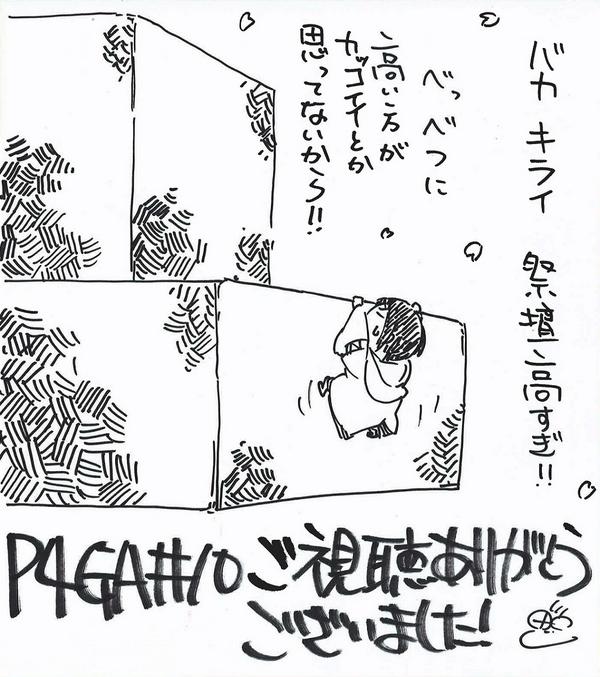 バカ キライ 祭壇高すぎ!!
べっべつに
高い方が
カッコイイとか
思ってないから!!
P4GA#10ご視聴ありがとう
ございました!